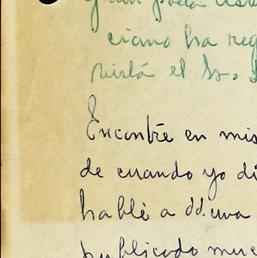 ciano ha reg
vistó el Sr.
Encontré en mis
de cuando yo di
hablé a Ud. una
publicado muc